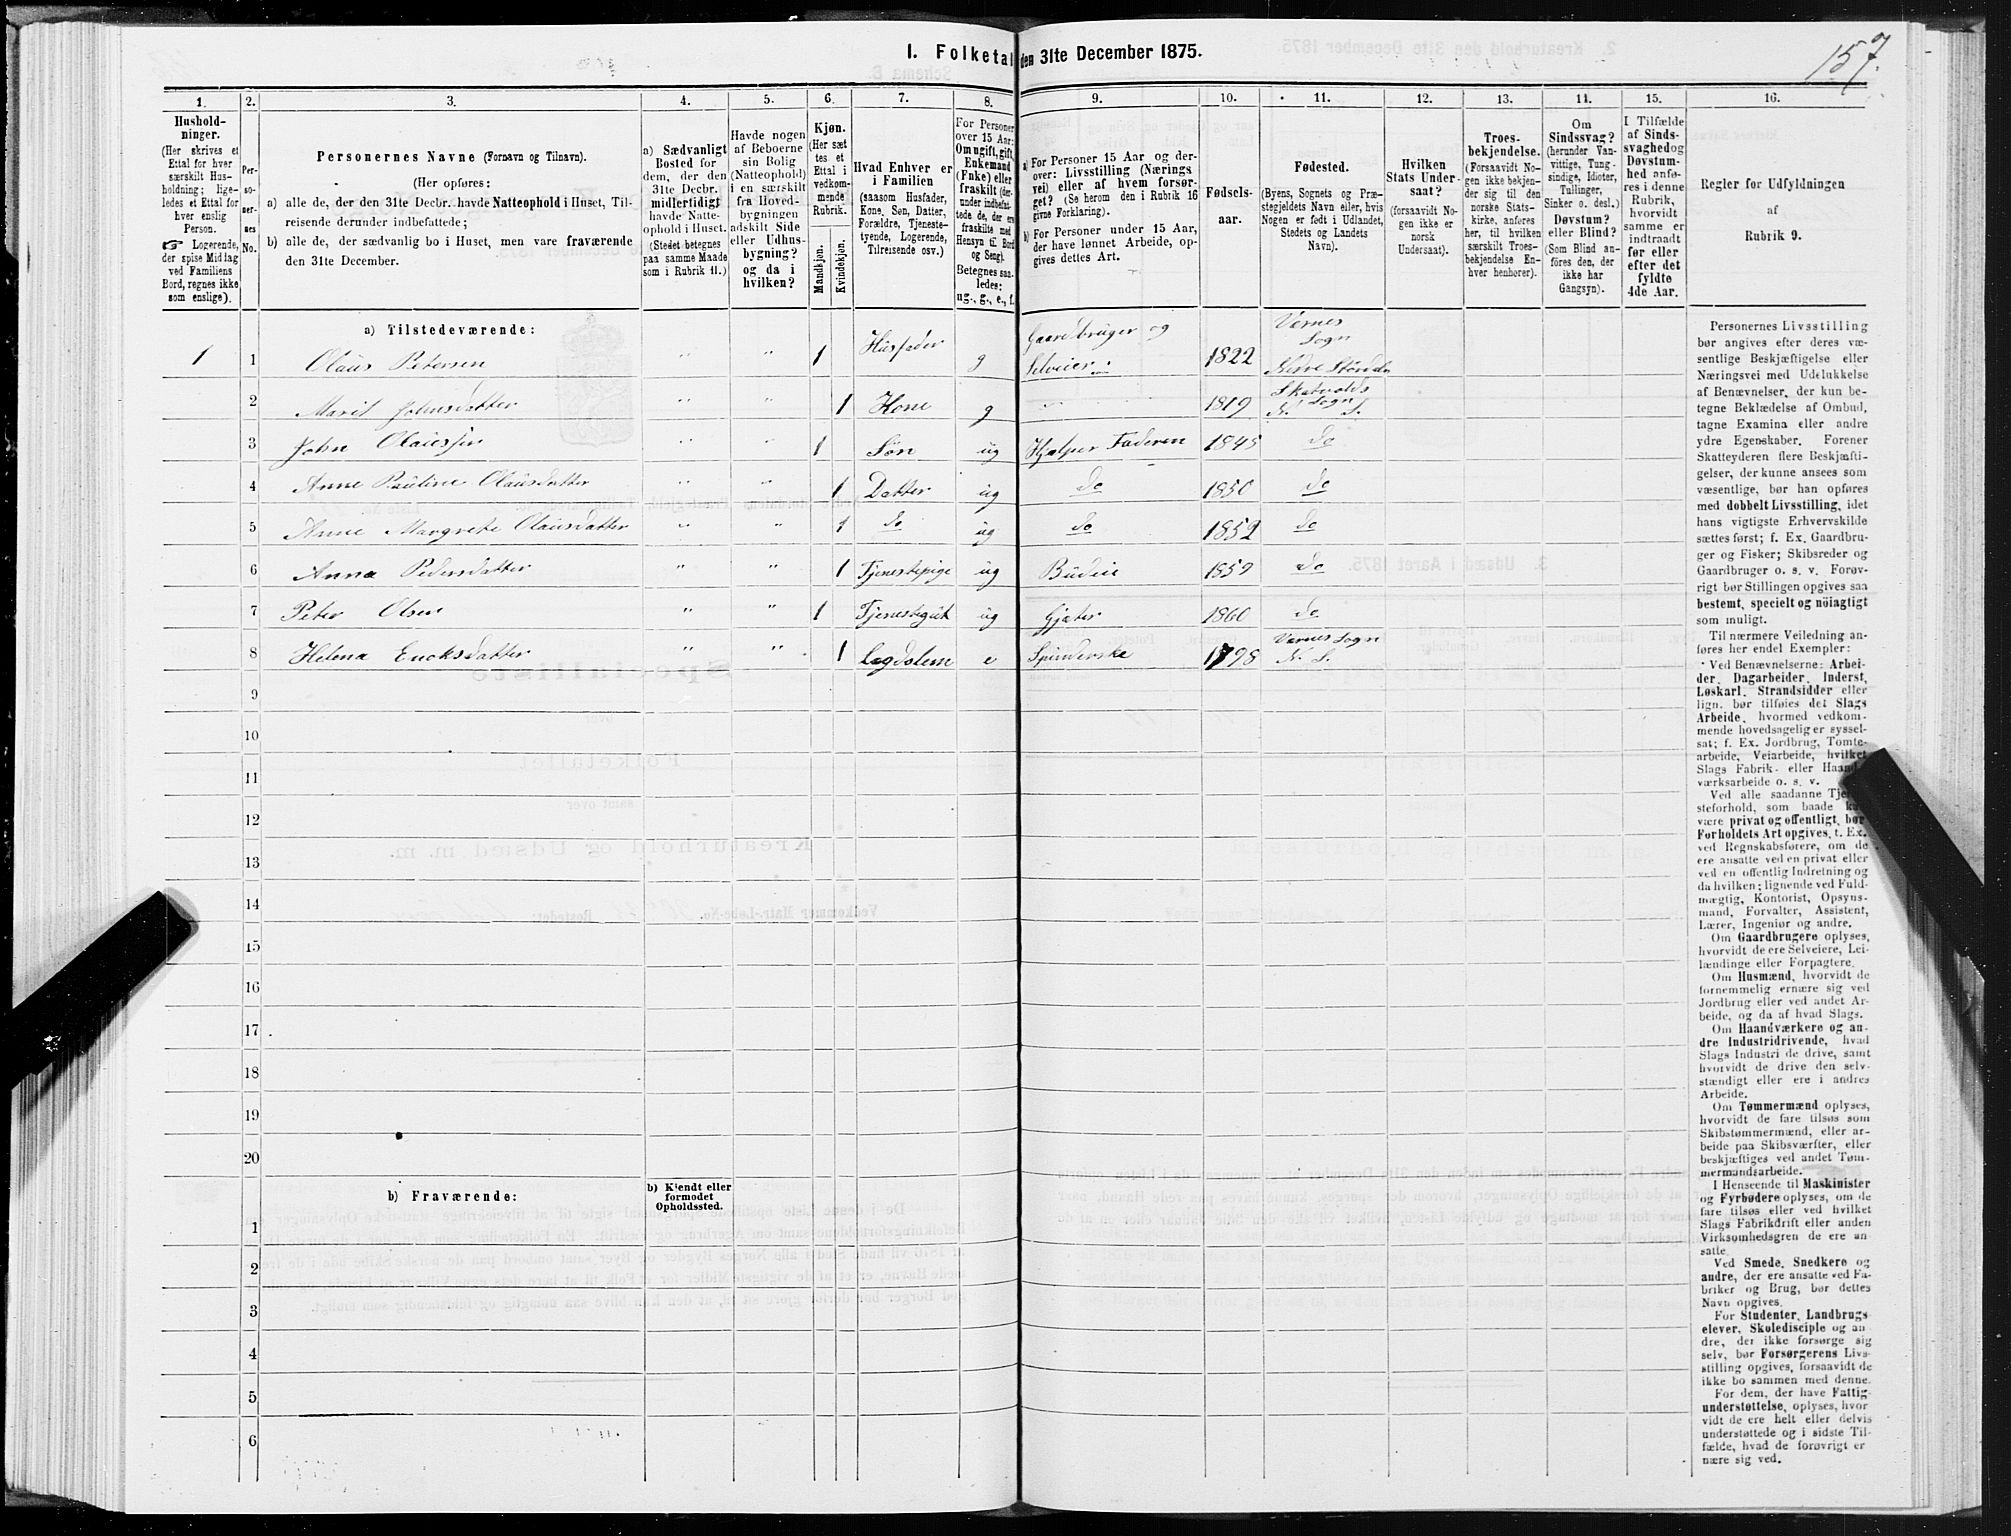 157.
I. Folketal den 31te December 1875.
1.
Hushold-
ninger.
(Her skrives et
Ettal for hver
særskilt Hus-
holdning; lige-
ledes et Ettal for
hver enslig
Person.
☞ Logerende,
der spise Middag
ved Familiens
Bord, regnes ikke
som enslige).
2.
Per-
so-
ner-
nes
No.
3.
Personernes Navne (Fornavn og Tilnavn).
(Her opføres:
a) alle de, der den 31te Decbr. havde Natteophold i Huset, Til-
reisende derunder indbefattede;
b) alle de, der sædvanlig bo i Huset, men vare fraværende
den 31te December.
4.
a) Sædvanligt
Bosted for
dem, der den
31te Decbr.
midlertidigt
havde Natte-
ophold i Huset.
(Stedet betegnes
paa samme Maade
som i Rubrik 11.)
5.
Havde nogen
af Beboerne
sin Bolig
(Natteophold)
i en særskilt
fra Hoved-
bygningen
adskilt Side
eller Udhus-
bygning?
og da i
hvilken?
6.
Kjøn.
(Her sæt
tes et
Ettal i
vedkom-
mende
Rubrik.
Mandkjøn.
Kvindekjøn.
7.
Hvad Enhver er
i Familien
(saasom Husfader,
Kone, Søn, Datter,
Forældre, Tjeneste-
tyende, Logerende,
Tilreisende osv.)
8.
For Personer
over 15 Aar:
Om ugift, gift,
Enkemand
(Enke) eller
fraskilt (der-
under indbefat-
tede de, der ere
fraskilte med
Hensyn til Bord
og Seng).
Betegnes saa-
ledes:
ug., g., e., f.
9.
a) For Personer 15 Aar og der-
over: Livsstilling (Nærings
vei) eller af hvem forsør-
get? (Se herom den i Rubrik 16
givne Forklaring).
b) For Personer under 15 Aar,
der have lønnet Arbeide, op-
gives dettes Art.
10.
Fødsels-
aar.
11.
Fødested.
(Byens, Sognets og Præ-
stegjeldets Navn eller, hvis
Nogen er født i Udlandet,
Stedets og Landets
Navn).
12.
Hvilken
Stats Under-
saat?
(forsaavidt No-
gen ikke er
norsk
Undersaat).
13.
Troes-
bekjendelse.
(Forsaavidt No-
gen ikke bekjen-
der sig til den
norske Stats-
kirke, anføres
her, til hvilken
særskilt Troes-
bekjendelse En-
hver henhører).
14.
Om
Sindssvag?
(herunder Van-
vittige, Tung-
sindige, Idioter,
Tullinger,
Sinker o. desl.)
Døvstum?
eller Blind?
(Som Blind an-
føres den, der
ikke har
Gangsyn).
15.
I Tilfælde
af Sinds-
svaghed og
Døvstum-
hed anfø-
res i denne
Rubrik,
hvorvidt
samme er
indtraadt
før eller
efter det
fyldte
4de Aar.
16.
Regler for Udfyldningen
af
Rubrik 9.
a) Tilstedeværende:
1 1 Olaus Petersen " " 1 Husfader g Gaardbruger og Selveier 1822 Værnes Sogn Nedre Størdalen
2 Marit Johnsdatter " " 1 Kone g " " 1819 Skatvolds Sogn N. S.
3 John Olaussen " " 1 Søn ug Hjælper Faderen 1845 do
4 Anne Pauline Olausdatter " " 1 Datter ug do 1850 do
5 Anne Margrete Olausdatter " " 1 do ug do 1852 do
6 Anna Pedersdatter " " 1 Tjenestepige ug Budeie 1859 do
7 Peter Olsen " " 1 Tjenestegut ug Gjæter 1860 do
8 Helena Ericksdatter " " 1 Lægdslem e Spinderske 1798 Værnes Sogn N. S.
9
10
11
12
13
14
15
16
17
18
19
20
b) Fraværende:
b) Kjendt eller
formodet
Opholdssted.
1
2
3
4
5
6
Personernes Livsstilling
bør angives efter deres væ-
sentlige Beskjæftigelse eller
Næringsvei med Udelukkelse
af Benævnelser, der kun be-
tegne Beklædelse af Ombud,
tagne Examina eller andre
ydre Egenskaber. Forener
Skatteyderen flere Beskjæfti-
gelser, der kunne ansees som
væsentlige, bør han opføres
med dobbelt Livsstilling, idet
hans vigtigste Erhvervskilde
sættes først; f. Ex. Gaardbru-
ger og Fisker; Skibsreder og
Gaardbruger o. s. v. Forøv-
rigt bør Stillingen opgives saa
bestemt, specielt og nöiagtigt
som muligt.
Til nærmere Veiledning an-
føres her endel Exempler:
Ved Benævnelserne: Arbei-
der, Dagarbeider, Inderst,
Løskarl, Strandsidder eller
lign. bør tilføies det Slags
Arbeide, hvormed vedkom-
mende hovedsagelig er syssel-
sat; f. Ex. Jordbrug, Tomte-
arbeide, Veiarbeide, hvilket
Slags Fabrik- eller Haand-
værksarbeide o. s. v.
Ved alle saadanne Tje-
steforhold, som baade kan
være privat og offentligt, bør
Forholdets Art opgives, t. Ex.
ved Regnskabsførere, om de
ere ansatte ved en privat eller
ved en offentlig Indretning og
da hvilken; lignende ved Fuld-
mægtig, Kontorist, Opsyns-
mand, Forvalter, Assistent,
Lærer, Ingeniør og andre.
Om Gaardbrugere oplyses,
hvorvidt de ere Selveiere, Lei-
lændinge eller Forpagtere.
Om Husmænd, hvorvidt de
fornemmelig ernære sig ved
Jordbrug eller ved andet Ar-
beide, og da af hvad Slags.
Om Haandværkere og an-
dre Industridrivende, hvad
Slags Industri de drive, samt
hvorvidt de drive den selv-
stændigt eller ere i andres
Arbeide.
Om Tømmermænd oplyses,
hvorvidt de fare tilsøs som
Skibstømmermænd, eller ar-
beide paa Skibsværfter, eller
beskjæftiges ved andet Tøm-
mermandsarbeide.
I Henseende til Maskinister
og Fyrbødere oplyses, om de
fare tilsøs eller ved hvilket
Slags Fabrikdrift eller anden
Virksomhedsgren de ere an-
satte.
Ved Smede, Snedkere og
andre, der ere ansatte ved Fa-
briker og Brug, bør dettes
Navn opgives.
For Studenter, Landbrugs-
elever, Skoledisciple og an-
dre, der ikke forsørge sig
selv, bør Forsørgerens Livs-
stilling opgives, forsaavidt de
ikke bo sammen med denne.
For dem, der have Fattig-
understøttelse, oplyses, hvor
vidt de ere helt eller delvis
understøttede og i sidste Til-
fælde, hvad de forøvrigt er
nære sig ved.